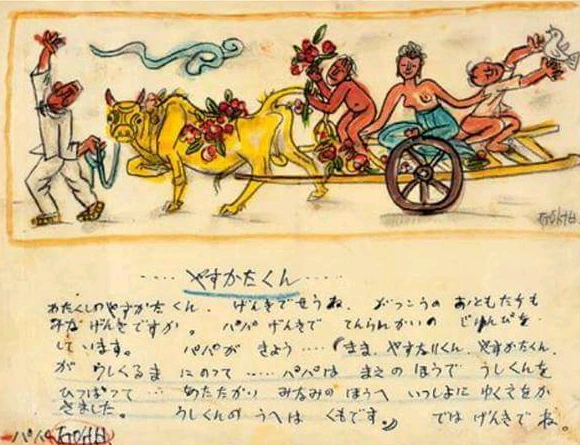 ····やすかたくん····
わたくしのやすかたくん、げんきでせうね。がっこうの おともだちも
みな げんきですか。パパ げんきで てんらんかいの じゅんびを
しています。 パパが きょう····(まま、やすなりくん、やすかたくん、
が うしくるま にのって ···パパは まえの ほうで うしくんを
ひっぱって ··· あたたかい みなみの ほうへ いっしょに ゆくえをか
きました。 うしくんの うへは くもです。) では げんきで ね。
パパ ㅈㅜㅇㅅㅓㅂ